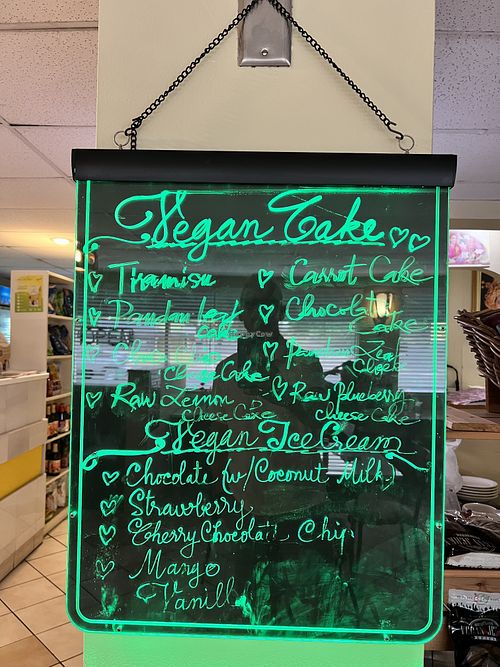 Vegan Cake
Tiramisu
Carrot Cake
Pandan Leaf
Cake
Chocolate
Cake
Cheese Cake
Pandan Leaf
Raw Lemon
Cheese Cake
Raw Blueberry
cheese Cake
Vegan Ice Cream
Chocolate (w/Coconut Milk)
Strawberry
Cherry Chocolate Chip
Mango
Vanill